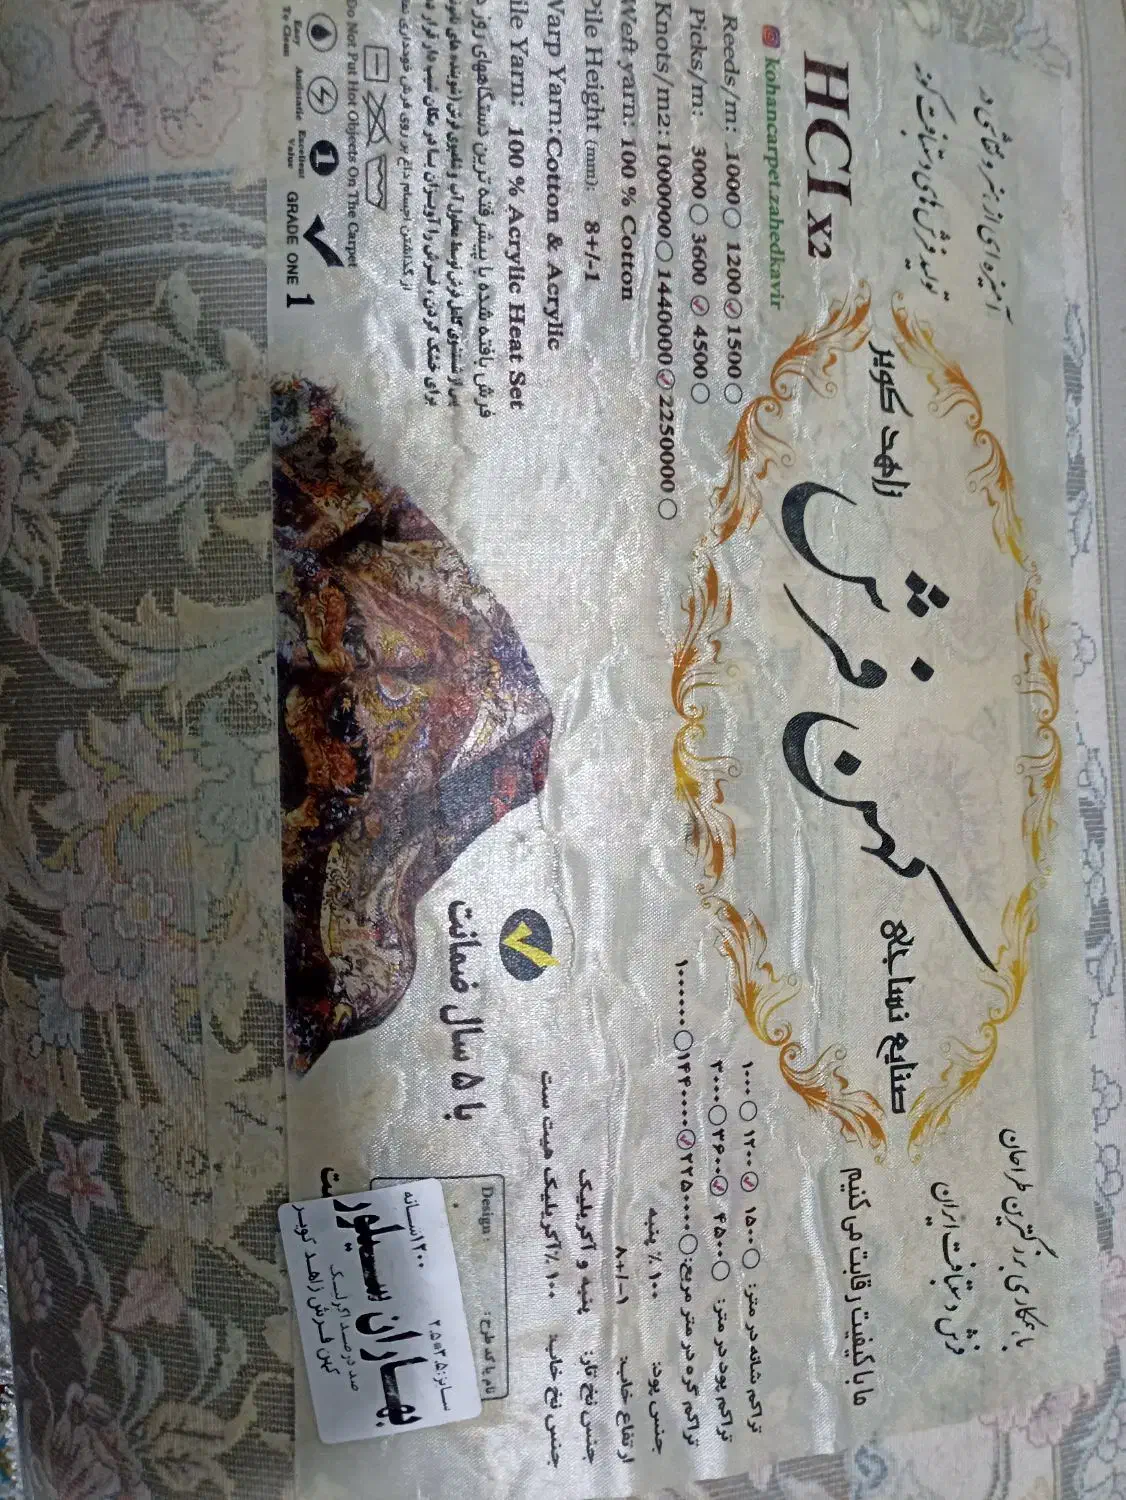 آمیزه ای از هنر و نقاشی در
تولید فرش های دستبافت گونه
با همکاری بزرگترین طراحان
فرش دستبافت ایران
ما با کیفیت رقابت می کنیم
صنایع نساجی
کهن فرش
زاهد کویر
HCI x2
kohancarpet.zahedkavir
Reeds/m: 1000 1200 1500
Picks/m: 3000 3600 4500
Knots/m2: 1000000 1440000 2250000
Weft yarn: 100 % Cotton
Pile Height (mm): 8+/-1
Warp Yarn:Cotton & Acrylic
ile Yarn: 100 % Acrylic Heat Set
تراکم شانه در متر: ۱۵۰۰ ۱۲۰۰ ۱۰۰۰
تراکم پود در متر: ۴۵۰۰ ۳۶۰۰ ۳۰۰۰
تراکم گره در متر مربع: ۲۲۵۰۰۰۰ ۱۴۴۰۰۰۰ ۱۰۰۰۰۰۰
جنس پود: ۱۰۰ ٪ پنبه
ارتفاع خاب: ۸+/-۱
جنس نخ تار: پنبه و آکریلیک
جنس نخ خاب: ۱۰۰ ٪ آکریلیک هیت ست
فرش بافته شده با پیشرفته ترین دستگاههای روز
Do Not Put Hot Objects On The Carpet
Easy To Clean
Antistatic
Excellent Value
GRADE ONE 1
با ۵ سال ضمانت
Design:
نام یا کد طرح:
۱۲۰۰شانه
سایز:۳.۵*۲.۵
بهاران سیلور
صد درصد اکرلیک
کهن فرش زاهد کویر